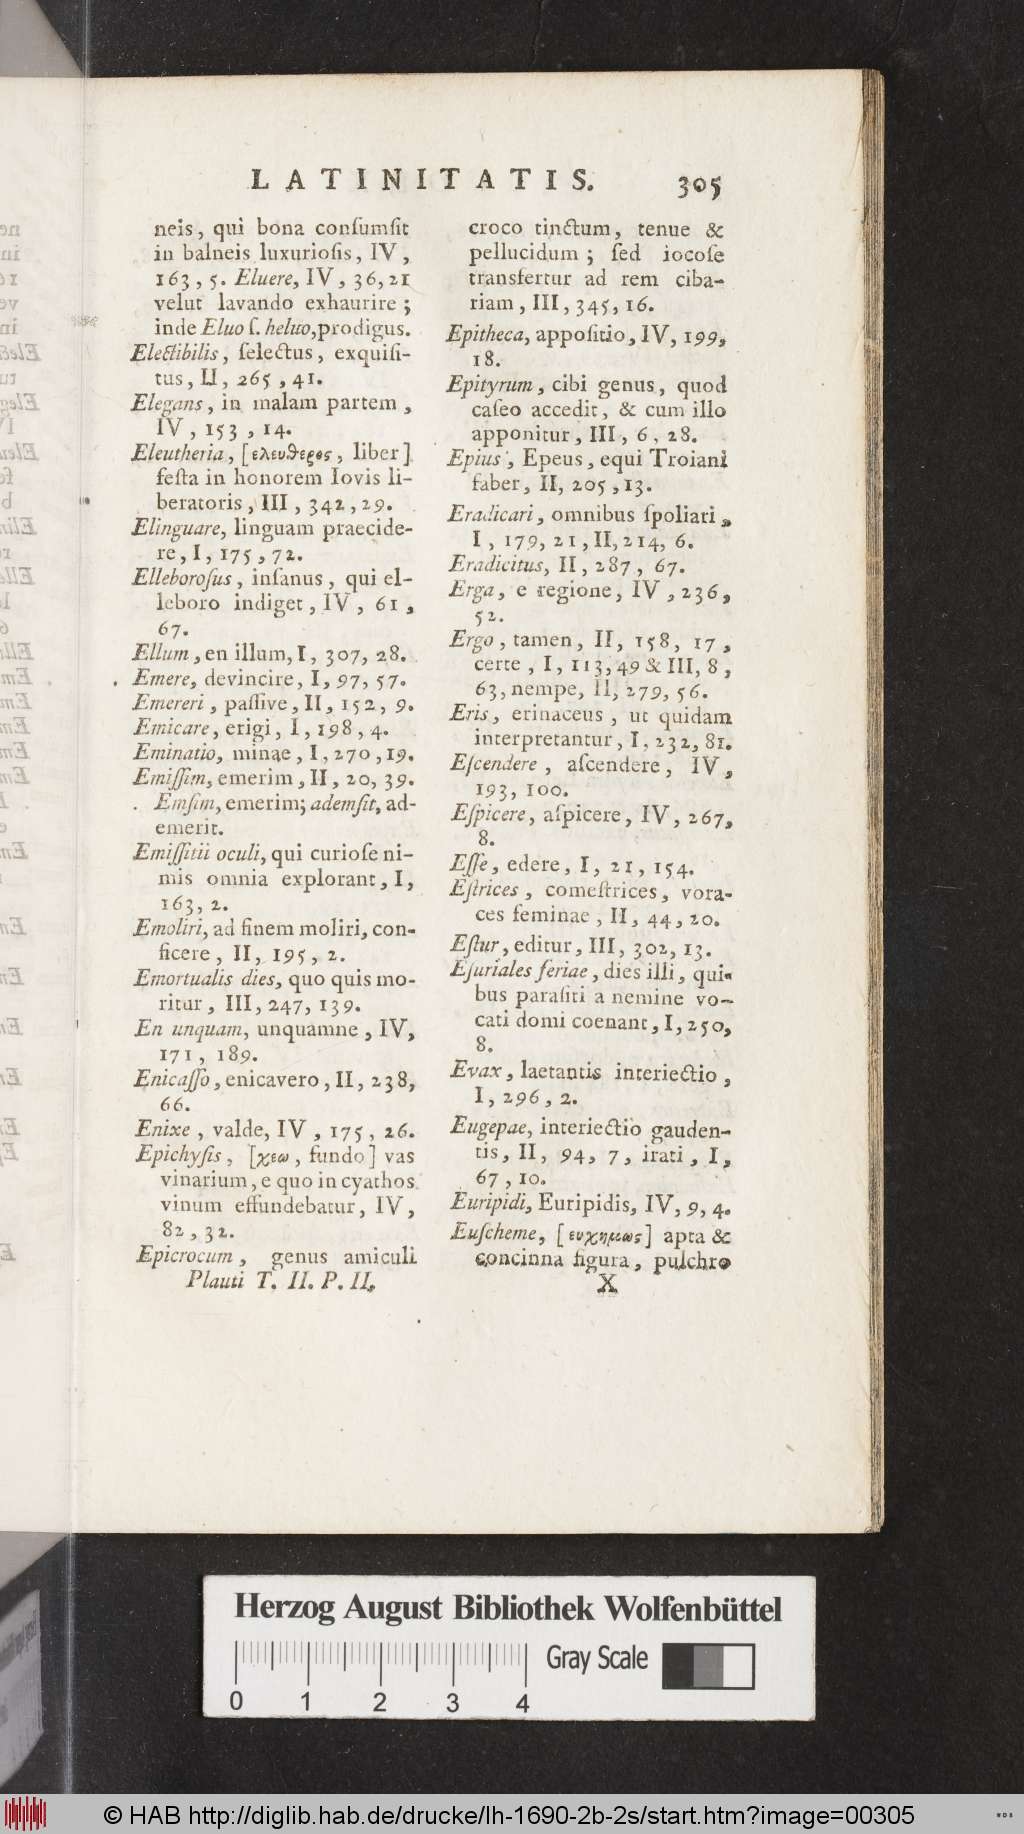 LATINITATIS. 305
neis, qui bona conſumſit
in balneis luxurioſis, IV,
163, 5. Eluere, IV, 36, 21
velut lavando exhaurire;
inde Eluo ſ. heluo, prodigus.
Electibilis, ſelectus, exquiſi-
tus, II, 265, 41.
Elegans, in malam partem,
IV, 153, 14.
Eleutheria, [ελευθερος, liber]
feſta in honorem Iovis li-
beratoris, III, 342, 29.
Elinguare, linguam praecide-
re, I, 175, 72.
Elleboroſus, inſanus, qui el-
leboro indiget, IV, 61,
67.
Ellum, en illum, I, 307, 28.
Emere, devincire, I, 97, 57.
Emereri, paſſive, II, 152, 9.
Emicare, erigi, I, 198, 4.
Eminatio, minae, I, 270, 19.
Emiſſim, emerim, II, 20, 39.
Emſim, emerim; ademſit, ad-
emerit.
Emiſſitii oculi, qui curioſe ni-
mis omnia explorant, I,
163, 2.
Emoliri, ad finem moliri, con-
ficere, II, 195, 2.
Emortualis dies, quo quis mo-
ritur, III, 247, 139.
En unquam, unquamne, IV,
171, 189.
Enicaſſo, enicavero, II, 238,
66.
Enixe, valde, IV, 175, 26.
Epichyſis, [χεω, fundo] vas
vinarium, e quo in cyathos
vinum effundebatur, IV,
82, 32.
Epicrocum, genus amiculi
Plauti T. II. P. II.
croco tinctum, tenue &
pellucidum; ſed iocoſe
transfertur ad rem ciba-
riam, III, 345, 16.
Epitheca, appoſitio, IV, 199,
18.
Epityrum, cibi genus, quod
caſeo accedit, & cum illo
apponitur, III, 6, 28.
Epius, Epeus, equi Troiani
faber, II, 205, 13.
Eradicari, omnibus ſpoliari,
I, 179, 21, II, 214, 6.
Eradicitus, II, 287, 67.
Erga, e regione, IV, 236,
52.
Ergo, tamen, II, 158, 17,
certe, I, 113, 49 & III, 8,
63, nempe, II, 279, 56.
Eris, erinaceus, ut quidam
interpretantur, I, 232, 81.
Eſcendere, aſcendere, IV,
193, 100.
Eſpicere, aſpicere, IV, 267,
8.
Eſſe, edere, I, 21, 154.
Eſtrices, comeſtrices, vora-
ces feminae, II, 44, 20.
Eſtur, editur, III, 302, 13.
Eſuriales feriae, dies illi, qui-
bus paraſiti a nemine vo-
cati domi coenant, I, 250,
8.
Evax, laetantis interiectio,
I, 296, 2.
Eugepae, interiectio gauden-
tis, II, 94, 7, irati, I,
67, 10.
Euripidi, Euripidis, IV, 9, 4.
Euſcheme, [ευχημως] apta &
concinna figura, pulchro
X
Herzog August Bibliothek Wolfenbüttel
Gray Scale
0 1 2 3 4
© HAB http://diglib.hab.de/drucke/lh-1690-2b-2s/start.htm?image=00305